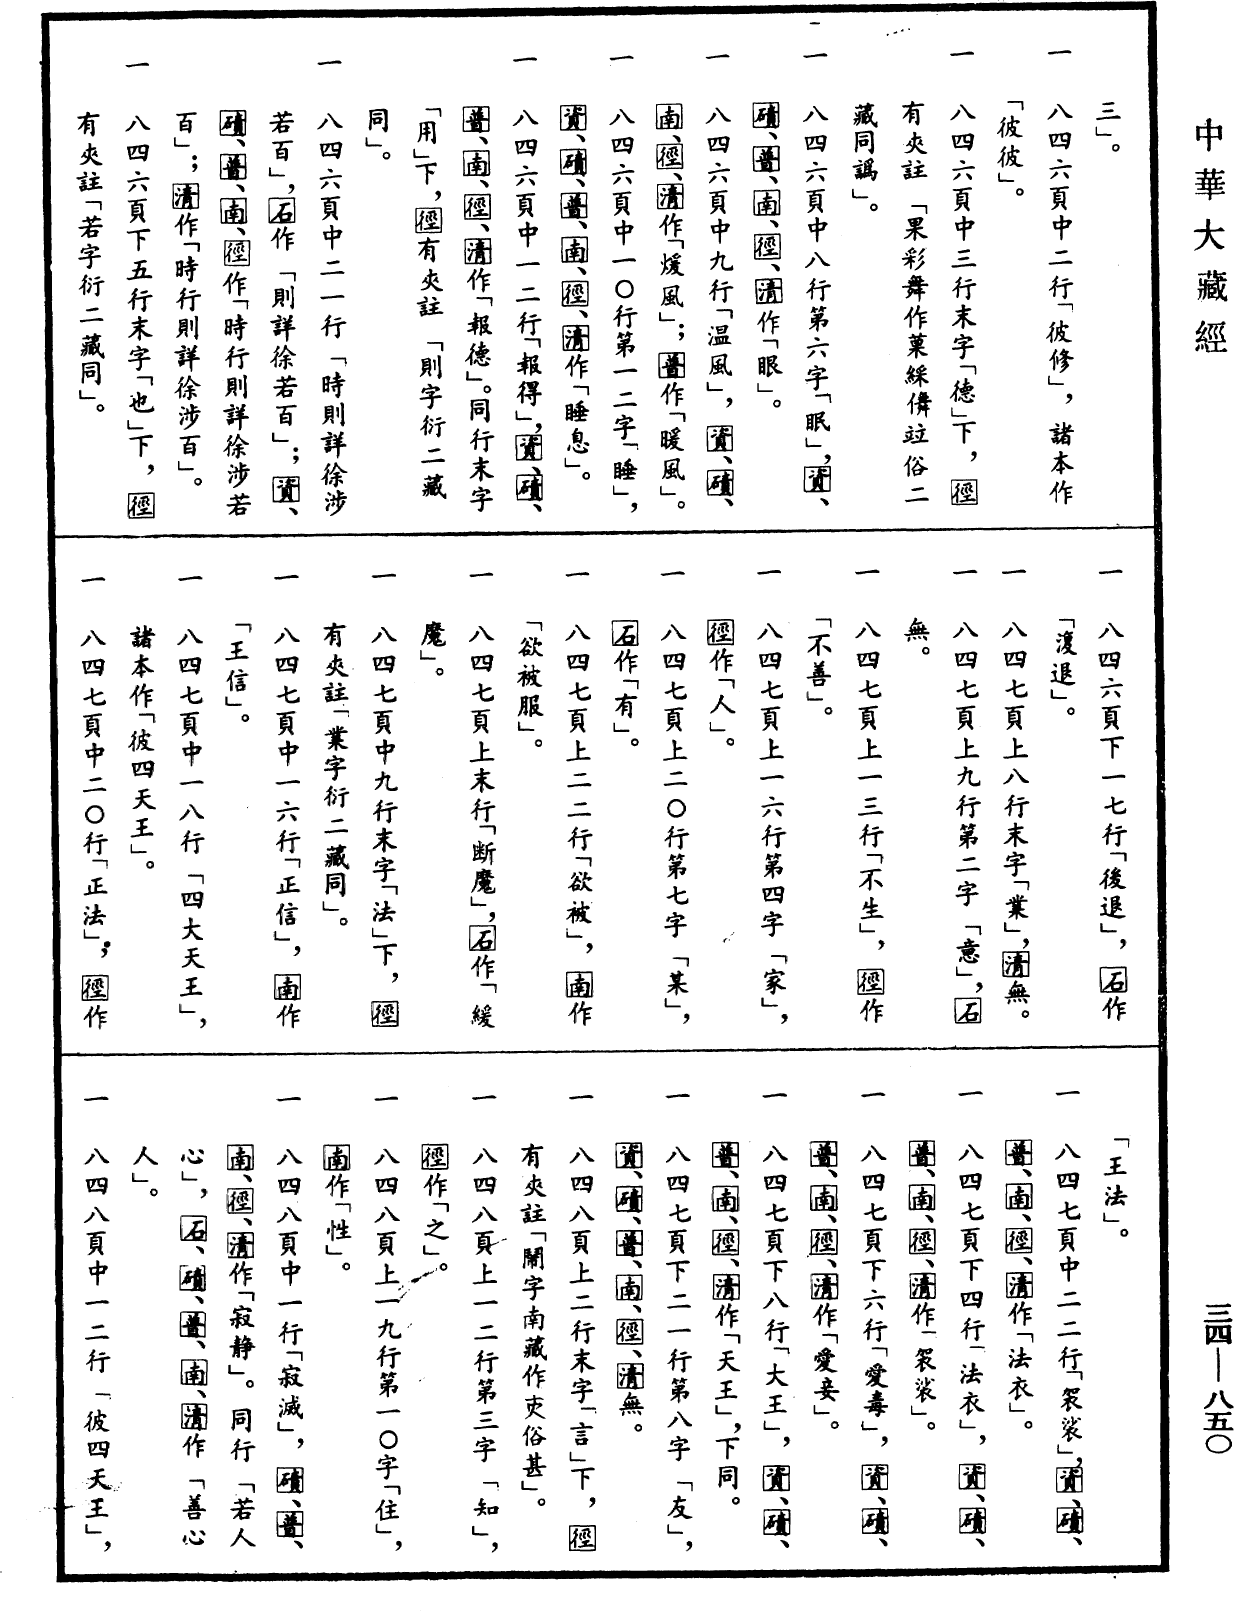 中華大藏經
三」。
一 八四六頁中二行「彼修」，諸本作
「彼彼」。
一 八四六頁中三行末字「德」下，徑
有夾註「果彩舞作菓綵儛竝俗二
藏同譌」。
一 八四六頁中八行第六字「眠」，資、
磧、普、南、徑、清作「眼」。
一 八四六頁中九行「温風」，資、磧、
南、徑、清作「煖風」；普作「暖風」。
一 八四六頁中一〇行第一二字「睡」，
資、磧、普、南、徑、清作「睡息」。
一 八四六頁中一二行「報得」，資、磧、
普、南、徑、清作「報德」。同行末字
「用」下，徑有夾註「則字衍二藏
同」。
一 八四六頁中二一行「時則詳徐涉
若百」，石作「則詳徐若百」；資、
磧、普、南、徑作「時行則詳徐涉若
百」；清作「時行則詳徐涉百」。
一 八四六頁下五行末字「也」下，徑
有夾註「若字衍二藏同」。
一 八四六頁下一七行「後退」，石作
「復退」。
一 八四七頁上八行末字「業」，清無。
一 八四七頁上九行第二字「意」，石
無。
一 八四七頁上一三行「不生」，徑作
「不善」。
一 八四七頁上一六行第四字「家」，
徑作「人」。
一 八四七頁上二〇行第七字「某」，
石作「有」。
一 八四七頁上二二行「欲被」，南作
「欲被服」。
一 八四七頁上末行「断魔」，石作「緩
魔」。
一 八四七頁中九行末字「法」下，徑
有夾註「業字衍二藏同」。
一 八四七頁中一六行「正信」，南作
「王信」。
一 八四七頁中一八行「四大天王」，
諸本作「彼四天王」。
一 八四七頁中二〇行「正法」，徑作
「王法」。
一 八四七頁中二二行「袈裟」，資、磧、
普、南、徑、清作「法衣」。
一 八四七頁下四行「法衣」，資、磧、
普、南、徑、清作「袈裟」。
一 八四七頁下六行「愛毒」，資、磧、
普、南、徑、清作「愛妾」。
一 八四七頁下八行「大王」，資、磧、
普、南、徑、清作「天王」，下同。
一 八四七頁下二一行第八字「友」，
資、磧、普、南、徑、清無。
一 八四八頁上二行末字「言」下，徑
有夾註「鬧字南藏作㕝俗甚」。
一 八四八頁上一二行第三字「知」，
徑作「之」。
一 八四八頁上一九行第一〇字「住」，
南作「性」。
一 八四八頁中一行「寂滅」，磧、普、
南、徑、清作「寂静」。同行「若人
心」，石、磧、普、南、清作「善心
人」。
一 八四八頁中一二行「彼四天王」，
三四—八五〇